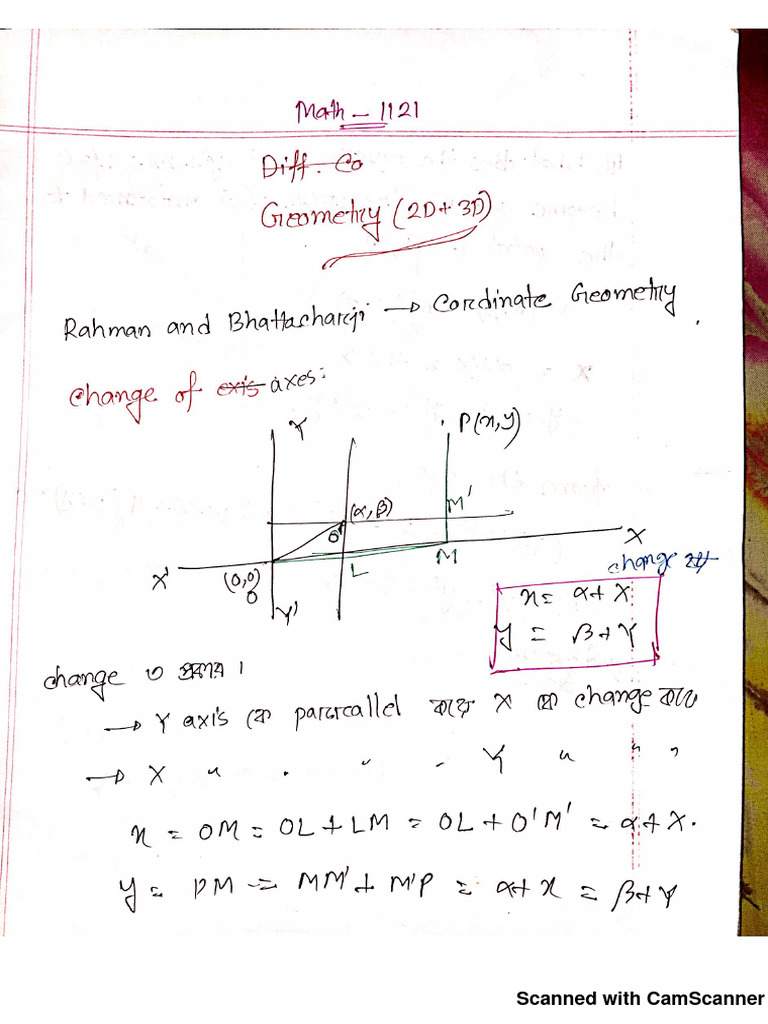 Math - 1121
Diff. Co
Geometry (2D + 3D)
Rahman and Bhattacharji → Cordinate Geometry.
Change of exis axes:
Y
P(x,y)
(α, β)
M'
O'
X
X'
(0,0)
O
L
M
Y'
change
x = α + X
y = β + Y
change ৩ প্রকার।
→ Y axis কে pararallel করে X কে change করে
→ X " " " " Y " " "
x = OM = OL + LM = OL + O'M' = α + X.
y = PM = MM' + M'P = α + x = β + Y
Scanned with CamScanner